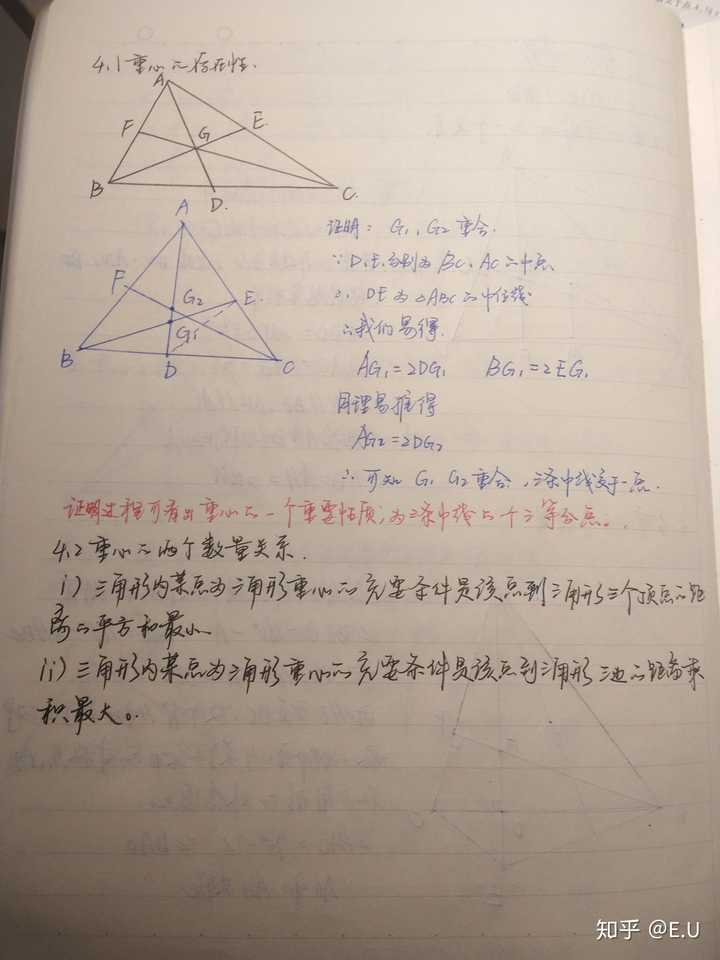 4.1 重心之存在性.
A
F
E.
G
B
D.
C.
A
证明: G₁, G₂ 重合.
∵ D、E 分别为 BC、AC 之中点
F
G₂
E.
∴ DE 为 △ABC 之中位线
G₁
∴ 我们易得.
B
D
C
AG₁=2DG₁ BG₁=2EG₁
同理易推得
AG₂=2DG₂
∴ 可知 G₁ G₂ 重合, 三条中线交于一点.
证明过程可看出重心之一个重要性质,为三条中线之一个三等分点。
4.2 重心之两个数量关系.
i) 三角形内某点为三角形重心之充要条件是该点到三角形三个顶点之距
离之平方和最小.
ii) 三角形内某点为三角形重心之充要条件是该点到三角形三边之距离乘
积最大。
知乎 @E.U